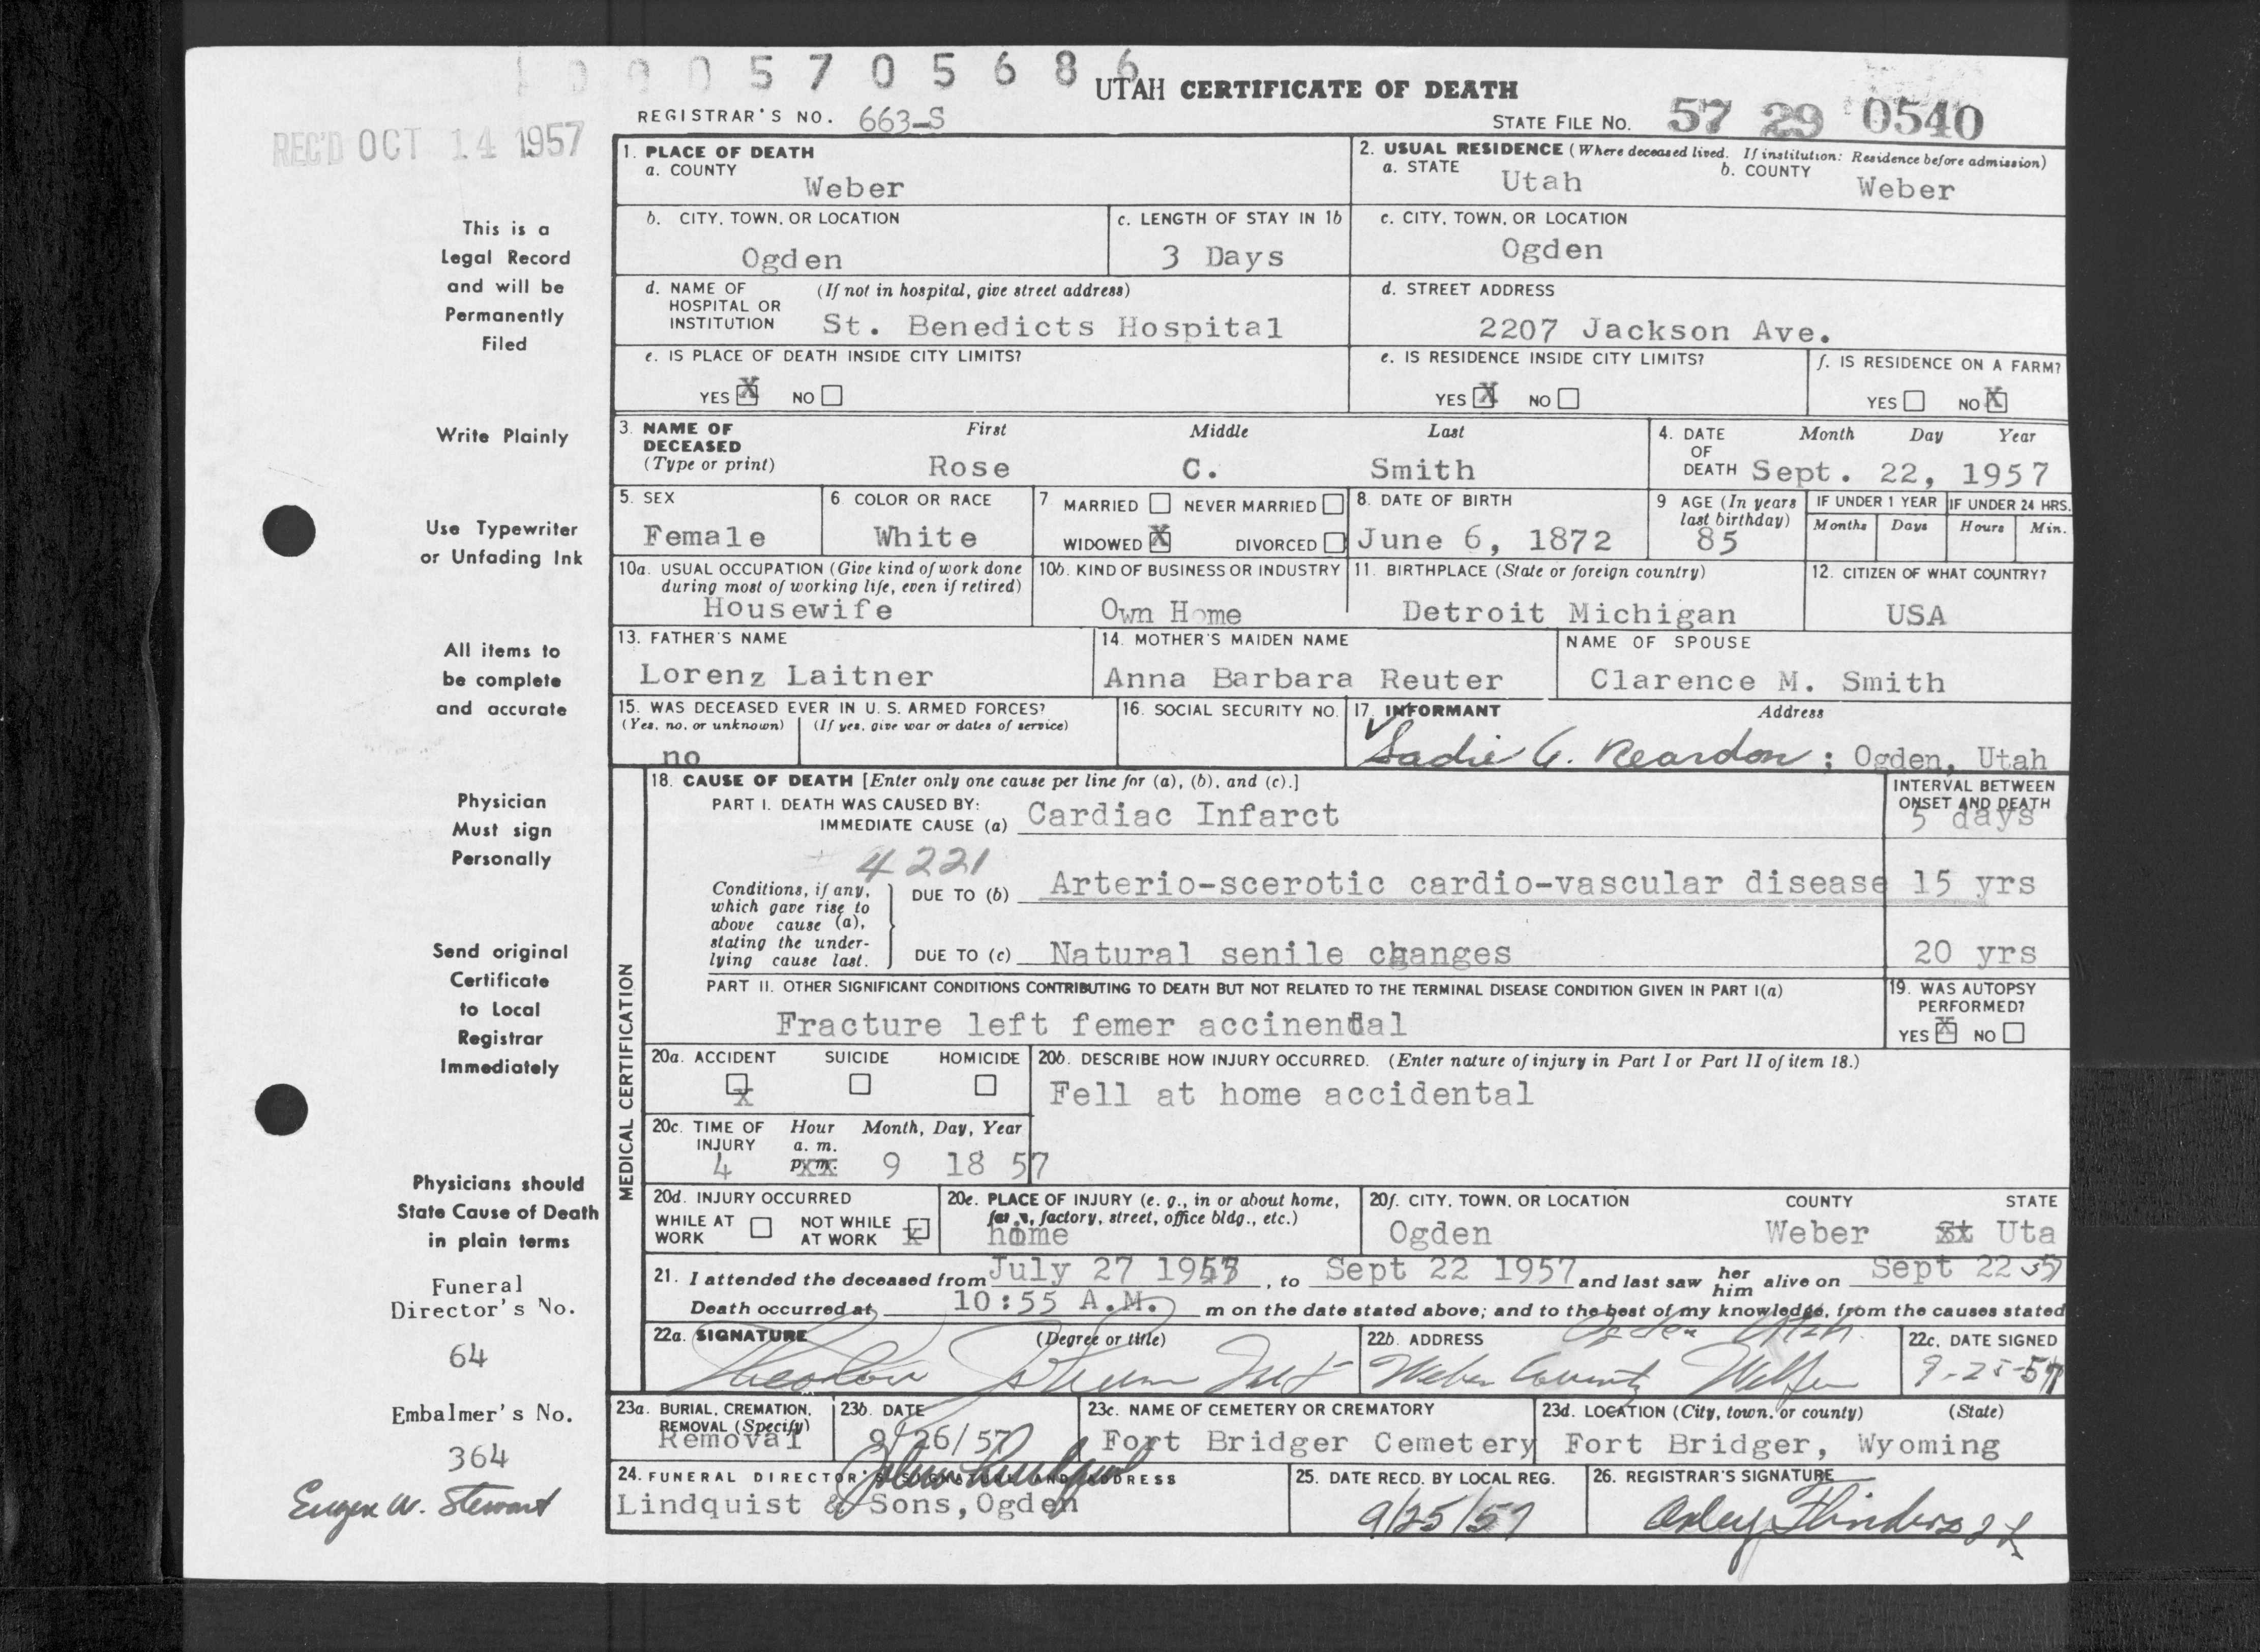 1 0 0 0 5 7 0 5 6 8 6
UTAH CERTIFICATE OF DEATH
REC'D OCT 14 1957
REGISTRAR'S NO. 663-S
STATE FILE NO. 57 29 0540
This is a
Legal Record
and will be
Permanently
Filed
Write Plainly
Use Typewriter
or Unfading Ink
All items to
be complete
and accurate
Physician
Must sign
Personally
Send original
Certificate
to Local
Registrar
Immediately
Physicians should
State Cause of Death
in plain terms
Funeral
Director's No.
64
Embalmer's No.
364
Eugene W. Stewart
1. PLACE OF DEATH
a. COUNTY
Weber
2. USUAL RESIDENCE (Where deceased lived. If institution: Residence before admission)
a. STATE Utah b. COUNTY Weber
b. CITY, TOWN, OR LOCATION
Ogden
c. LENGTH OF STAY IN 1b
3 Days
c. CITY, TOWN, OR LOCATION
Ogden
d. NAME OF HOSPITAL OR INSTITUTION (If not in hospital, give street address)
St. Benedicts Hospital
d. STREET ADDRESS
2207 Jackson Ave.
e. IS PLACE OF DEATH INSIDE CITY LIMITS?
YES X NO
e. IS RESIDENCE INSIDE CITY LIMITS?
YES X NO
f. IS RESIDENCE ON A FARM?
YES NO X
3. NAME OF DECEASED (Type or print)
First Middle Last
Rose C. Smith
4. DATE OF DEATH Month Day Year
Sept. 22, 1957
5. SEX
Female
6. COLOR OR RACE
White
7 MARRIED NEVER MARRIED
WIDOWED X DIVORCED
8. DATE OF BIRTH
June 6, 1872
9 AGE (In years last birthday)
85
IF UNDER 1 YEAR
Months Days
IF UNDER 24 HRS.
Hours Min.
10a. USUAL OCCUPATION (Give kind of work done during most of working life, even if retired)
Housewife
10b. KIND OF BUSINESS OR INDUSTRY
Own Home
11. BIRTHPLACE (State or foreign country)
Detroit Michigan
12. CITIZEN OF WHAT COUNTRY?
USA
13. FATHER'S NAME
Lorenz Laitner
14. MOTHER'S MAIDEN NAME
Anna Barbara Reuter
NAME OF SPOUSE
Clarence M. Smith
15. WAS DECEASED EVER IN U. S. ARMED FORCES?
(Yes, no, or unknown) (If yes, give war or dates of service)
no
16. SOCIAL SECURITY NO.
17. INFORMANT Address
Sadie G. Reardon; Ogden, Utah
MEDICAL CERTIFICATION
18. CAUSE OF DEATH [Enter only one cause per line for (a), (b), and (c).]
INTERVAL BETWEEN ONSET AND DEATH
PART I. DEATH WAS CAUSED BY:
IMMEDIATE CAUSE (a) Cardiac Infarct 5 days
4221
Conditions, if any, which gave rise to above cause (a), stating the underlying cause last.
DUE TO (b) Arterio-scerotic cardio-vascular disease 15 yrs
DUE TO (c) Natural senile changes 20 yrs
PART II. OTHER SIGNIFICANT CONDITIONS CONTRIBUTING TO DEATH BUT NOT RELATED TO THE TERMINAL DISEASE CONDITION GIVEN IN PART I(a)
Fracture left femer accinental
19. WAS AUTOPSY PERFORMED?
YES X NO
20a. ACCIDENT SUICIDE HOMICIDE
X
20b. DESCRIBE HOW INJURY OCCURRED. (Enter nature of injury in Part I or Part II of item 18.)
Fell at home accidental
20c. TIME OF INJURY Hour Month, Day, Year
a. m.
4 p. m. 9 18 57
20d. INJURY OCCURRED
WHILE AT WORK NOT WHILE AT WORK X
20e. PLACE OF INJURY (e. g., in or about home, farm, factory, street, office bldg., etc.)
home
20f. CITY, TOWN, OR LOCATION COUNTY STATE
Ogden Weber Uta
21. I attended the deceased from July 27 19, to Sept 22 1957 and last saw her him alive on Sept 22 57
Death occurred at 10:55 A.M. m on the date stated above; and to the best of my knowledge, from the causes stated
22a. SIGNATURE (Degree or title)
22b. ADDRESS
Ogden Utah
Weber County
22c. DATE SIGNED
9-25-57
23a. BURIAL, CREMATION, REMOVAL (Specify)
Removal
23b. DATE
9/26/57
23c. NAME OF CEMETERY OR CREMATORY
Fort Bridger Cemetery
23d. LOCATION (City, town, or county) (State)
Fort Bridger, Wyoming
24. FUNERAL DIRECTOR'S SIGNATURE AND ADDRESS
Lindquist & Sons, Ogden
25. DATE RECD. BY LOCAL REG.
9/25/57
26. REGISTRAR'S SIGNATURE
Flinders